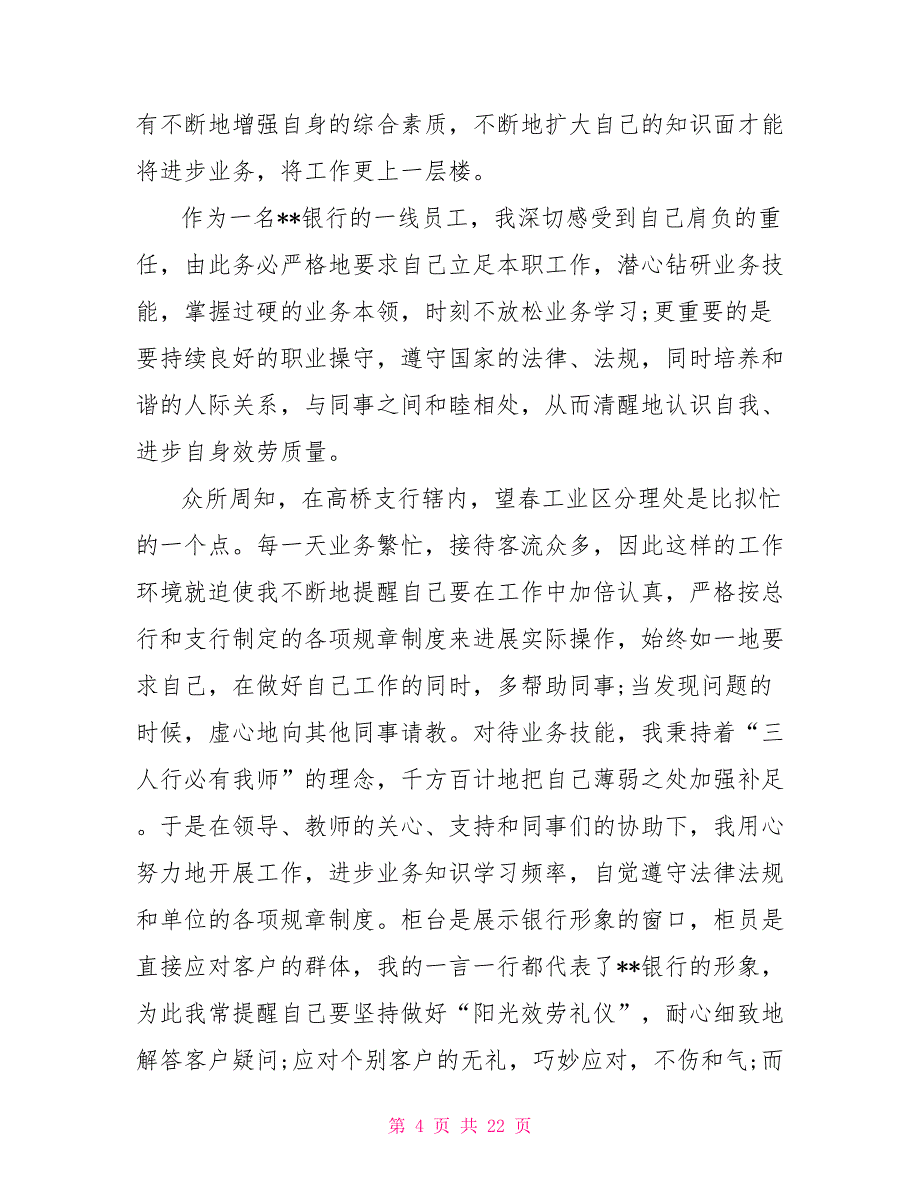 有不断地增强自身的综合素质，不断地扩大自己的知识面才能
将进步业务，将工作更上一层楼。
作为一名**银行的一线员工，我深切感受到自己肩负的重
任，由此务必严格地要求自己立足本职工作，潜心钻研业务技
能，掌握过硬的业务本领，时刻不放松业务学习;更重要的是
要持续良好的职业操守，遵守国家的法律、法规，同时培养和
谐的人际关系，与同事之间和睦相处，从而清醒地认识自我、
进步自身效劳质量。
众所周知，在高桥支行辖内，望春工业区分理处是比拟忙
的一个点。每一天业务繁忙，接待客流众多，因此这样的工作
环境就迫使我不断地提醒自己要在工作中加倍认真，严格按总
行和支行制定的各项规章制度来进展实际操作，始终如一地要
求自己，在做好自己工作的同时，多帮助同事;当发现问题的
时候，虚心地向其他同事请教。对待业务技能，我秉持着“三
人行必有我师”的理念，千方百计地把自己薄弱之处加强补足
。于是在领导、教师的关心、支持和同事们的协助下，我用心
努力地开展工作，进步业务知识学习频率，自觉遵守法律法规
和单位的各项规章制度。柜台是展示银行形象的窗口，柜员是
直接应对客户的群体，我的一言一行都代表了**银行的形象，
为此我常提醒自己要坚持做好“阳光效劳礼仪”，耐心细致地
解答客户疑问;应对个别客户的无礼，巧妙应对，不伤和气;而
第 4 页 共 22 页